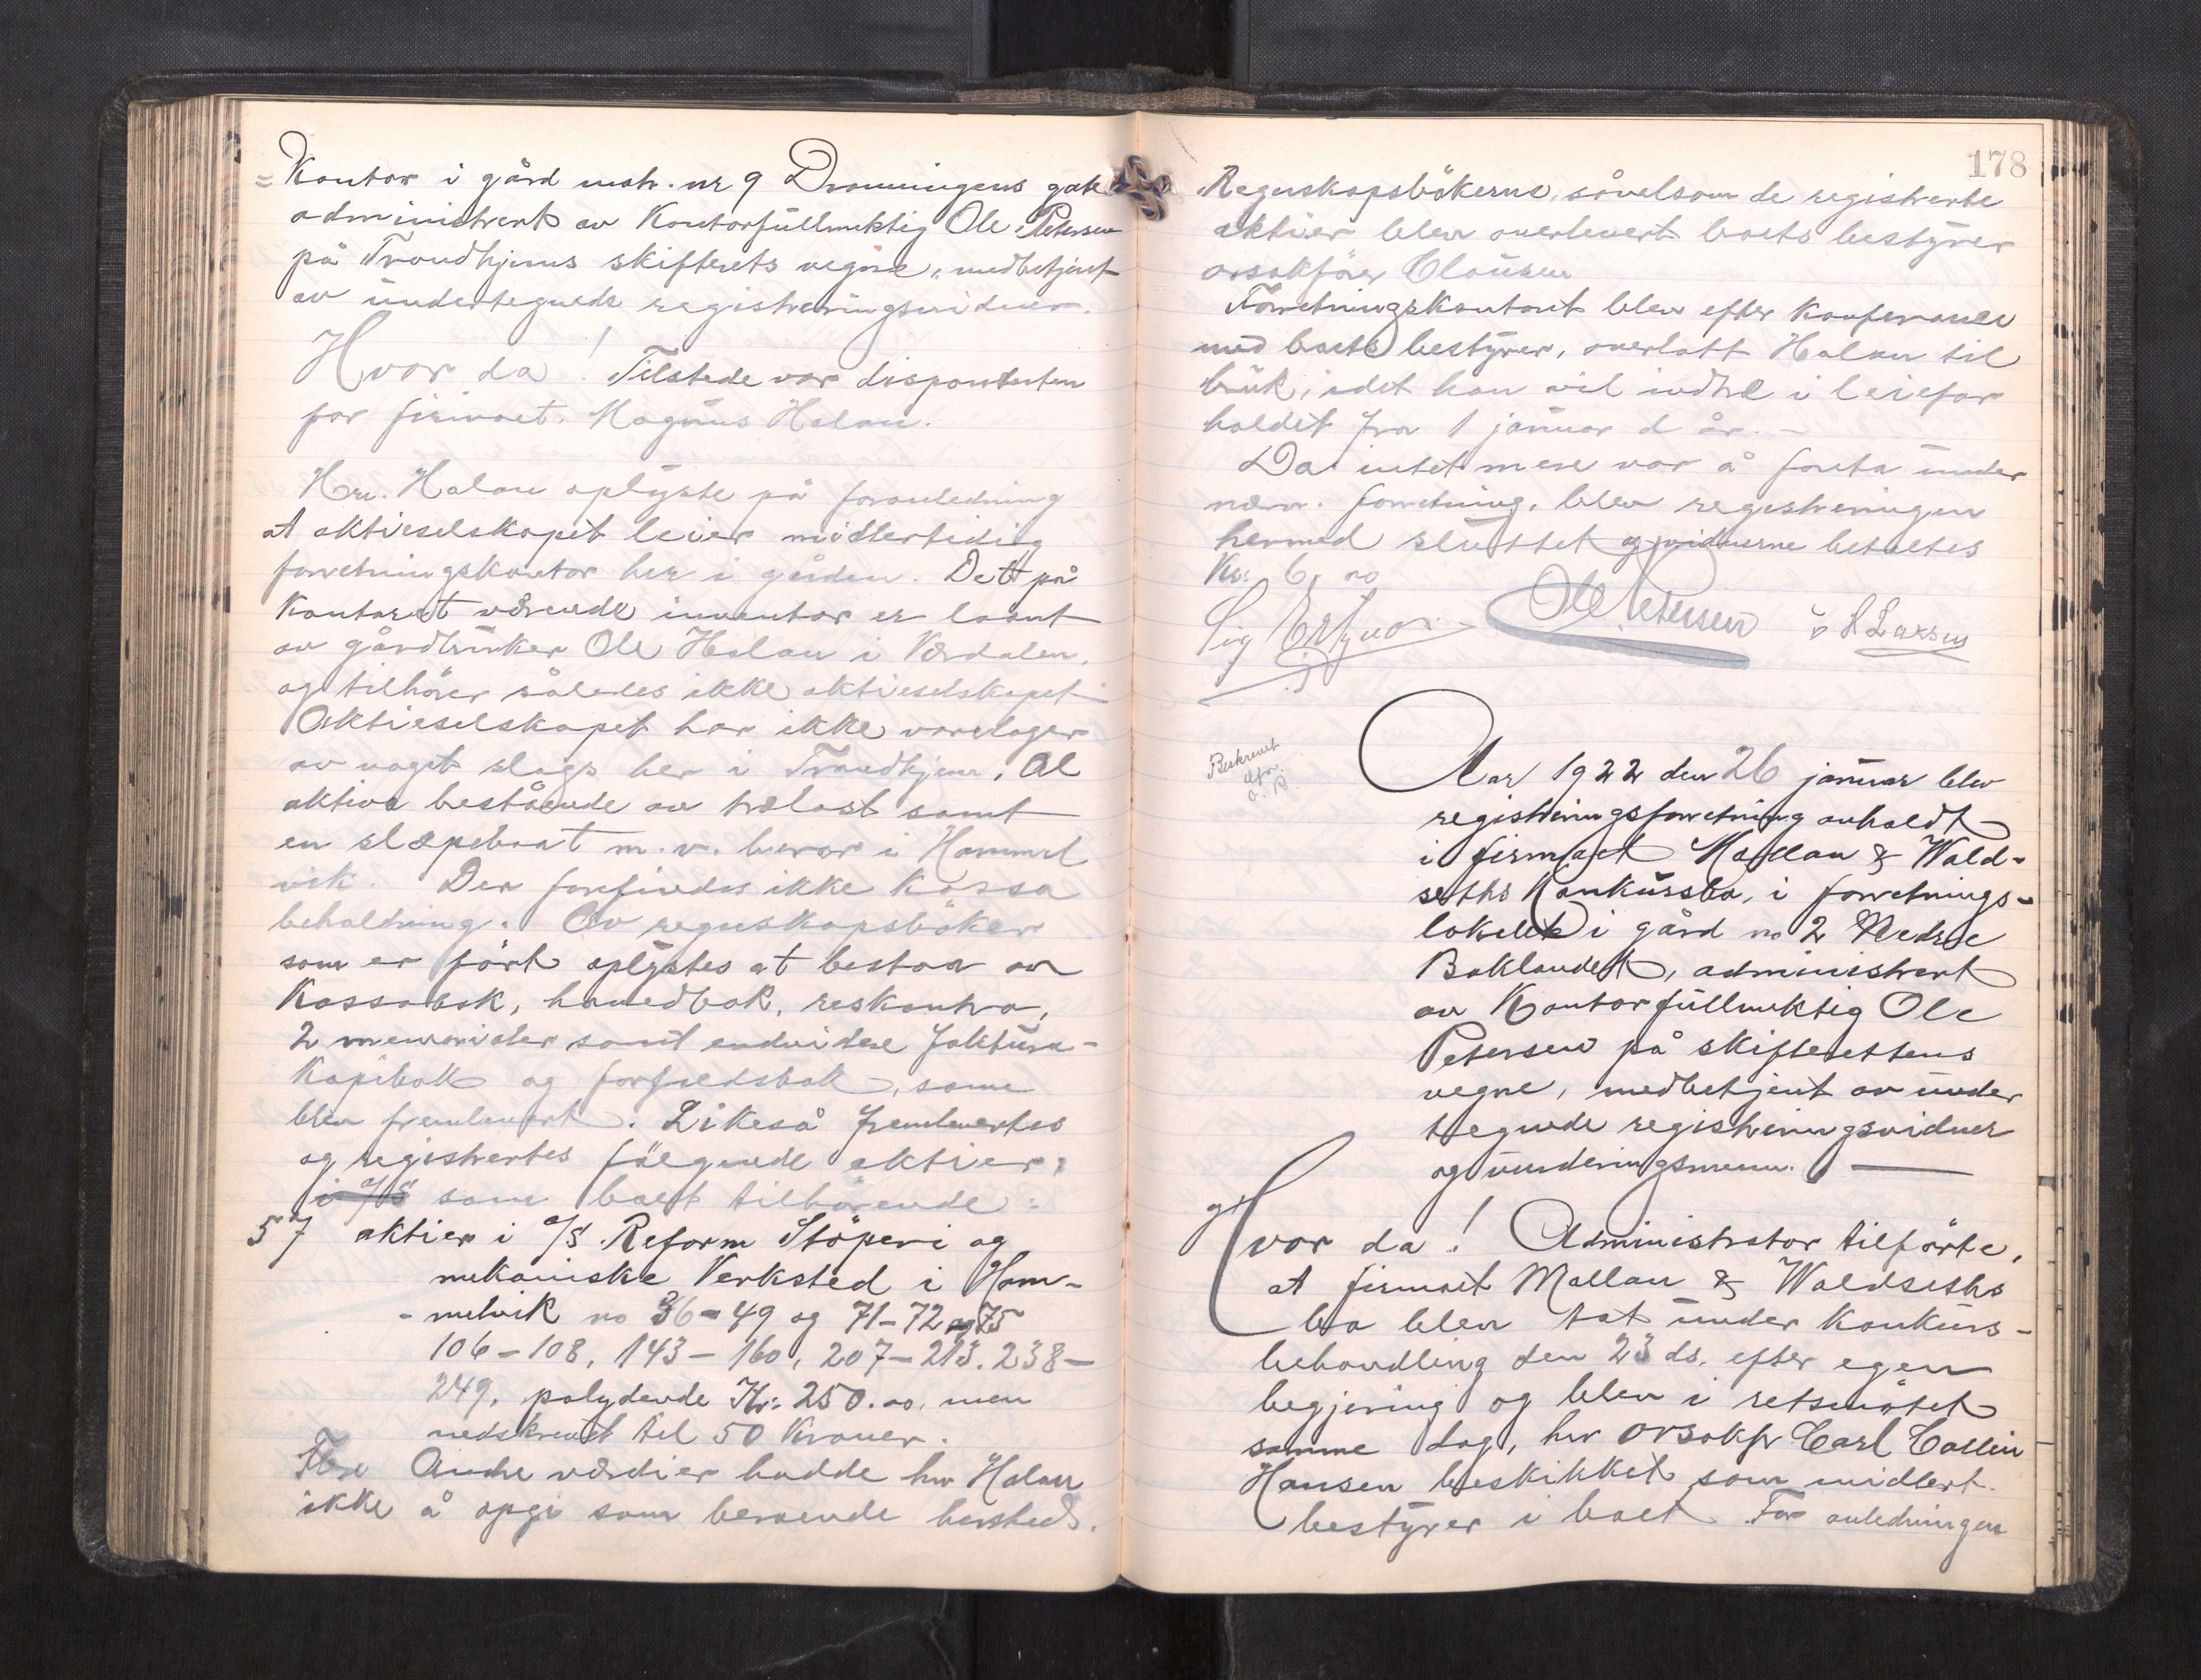 Kontor i gård matr. nr 9 Dronningens gate
administrert av Kontorfüllmektig Ole Petersen
på Trondhjems skifterets vegne, medbetjent
av undertegnede registreringsvidner.
Hvor da! Tilstede var disponenten
for firmaet, Magnus Halan.
Hr. Halan oplyste på foranledning
at aktieselskapet leier midlertidig
forretningskontor her i gården. Det på
Kontoret værende inventar er laant
av gårdbruker Ole Halan i Værdalen,
og tilhører således ikke aktieselskapet
Aktieselskapet har ikke varelager
av noget slags her i Trondhjem. Al
aktiva bestående av trælast samt
en slæpebaat m.v. beror i Hommel
vik. Der forefindes ikke Kassa
behaldning. Av regnskapsböker
som er fört oplystes at bestaa av
Kassabok, hovedbok, reskontro,
2 memorialer samt endvidere faktura-
Kopibok og forfaldsbok, som
blev fremlevert. Likeså fremlevertes
og registrertes fölgende aktier:
i a/s som boet tilhörende:
57 aktier i a/s Reform Stöperi og
mekaniske Verksted i Hom-
- melvik no 36-49 og 71-72 og 75
106-108, 143-160, 207-213. 238-
249, palydende Kr: 250.00, men
nedskrevet til 50 Kroner.
Flere Andre værdier hadde hr Halan
ikke å opgi som beroende hersteds.
178
Regnskapsbökerne, såvelsom de registrerte
aktier blev overlevert boets bestyrer
orsakförer Clausen
Forretningskontoret blev efter Konferanse
med boets bestyrer, overlatt Halan til
bruk, idet han vil indtre i leiefor
holdet fra 1 januar d år. -
Da intet mere var å foreta under
nærv. forretning, blev registreringen
hermed sluttet og vidnerne betaltes
Kr. 6,00
Ole Petersen
Larsen
Beskrevet
O. P.
Aar 1922 den 26 januar blev
registreringsforretning avholdt
i firmaet Mallau & Wald-
seths Konkursbo, i forretnings-
lokalet i gård no 2 Nedre
Baklandet, administrert
av Kontorfüllmektig Ole
Petersen på skifterettens
vegne, medbetjent av under
tegnede registreringsvidner
og vurderingsmenn. —
Hvor da! Administrator tilförte,
at firmaet Mallau & Waldseths
bo blev tat under Konkurs-
behandling den 23 ds. efter egen
begjæring og blev i retsmötet
samme dag, hr orsakfr Carl Collin
Hansen beskikket som midlert.
bestyrer i boet For anledningen